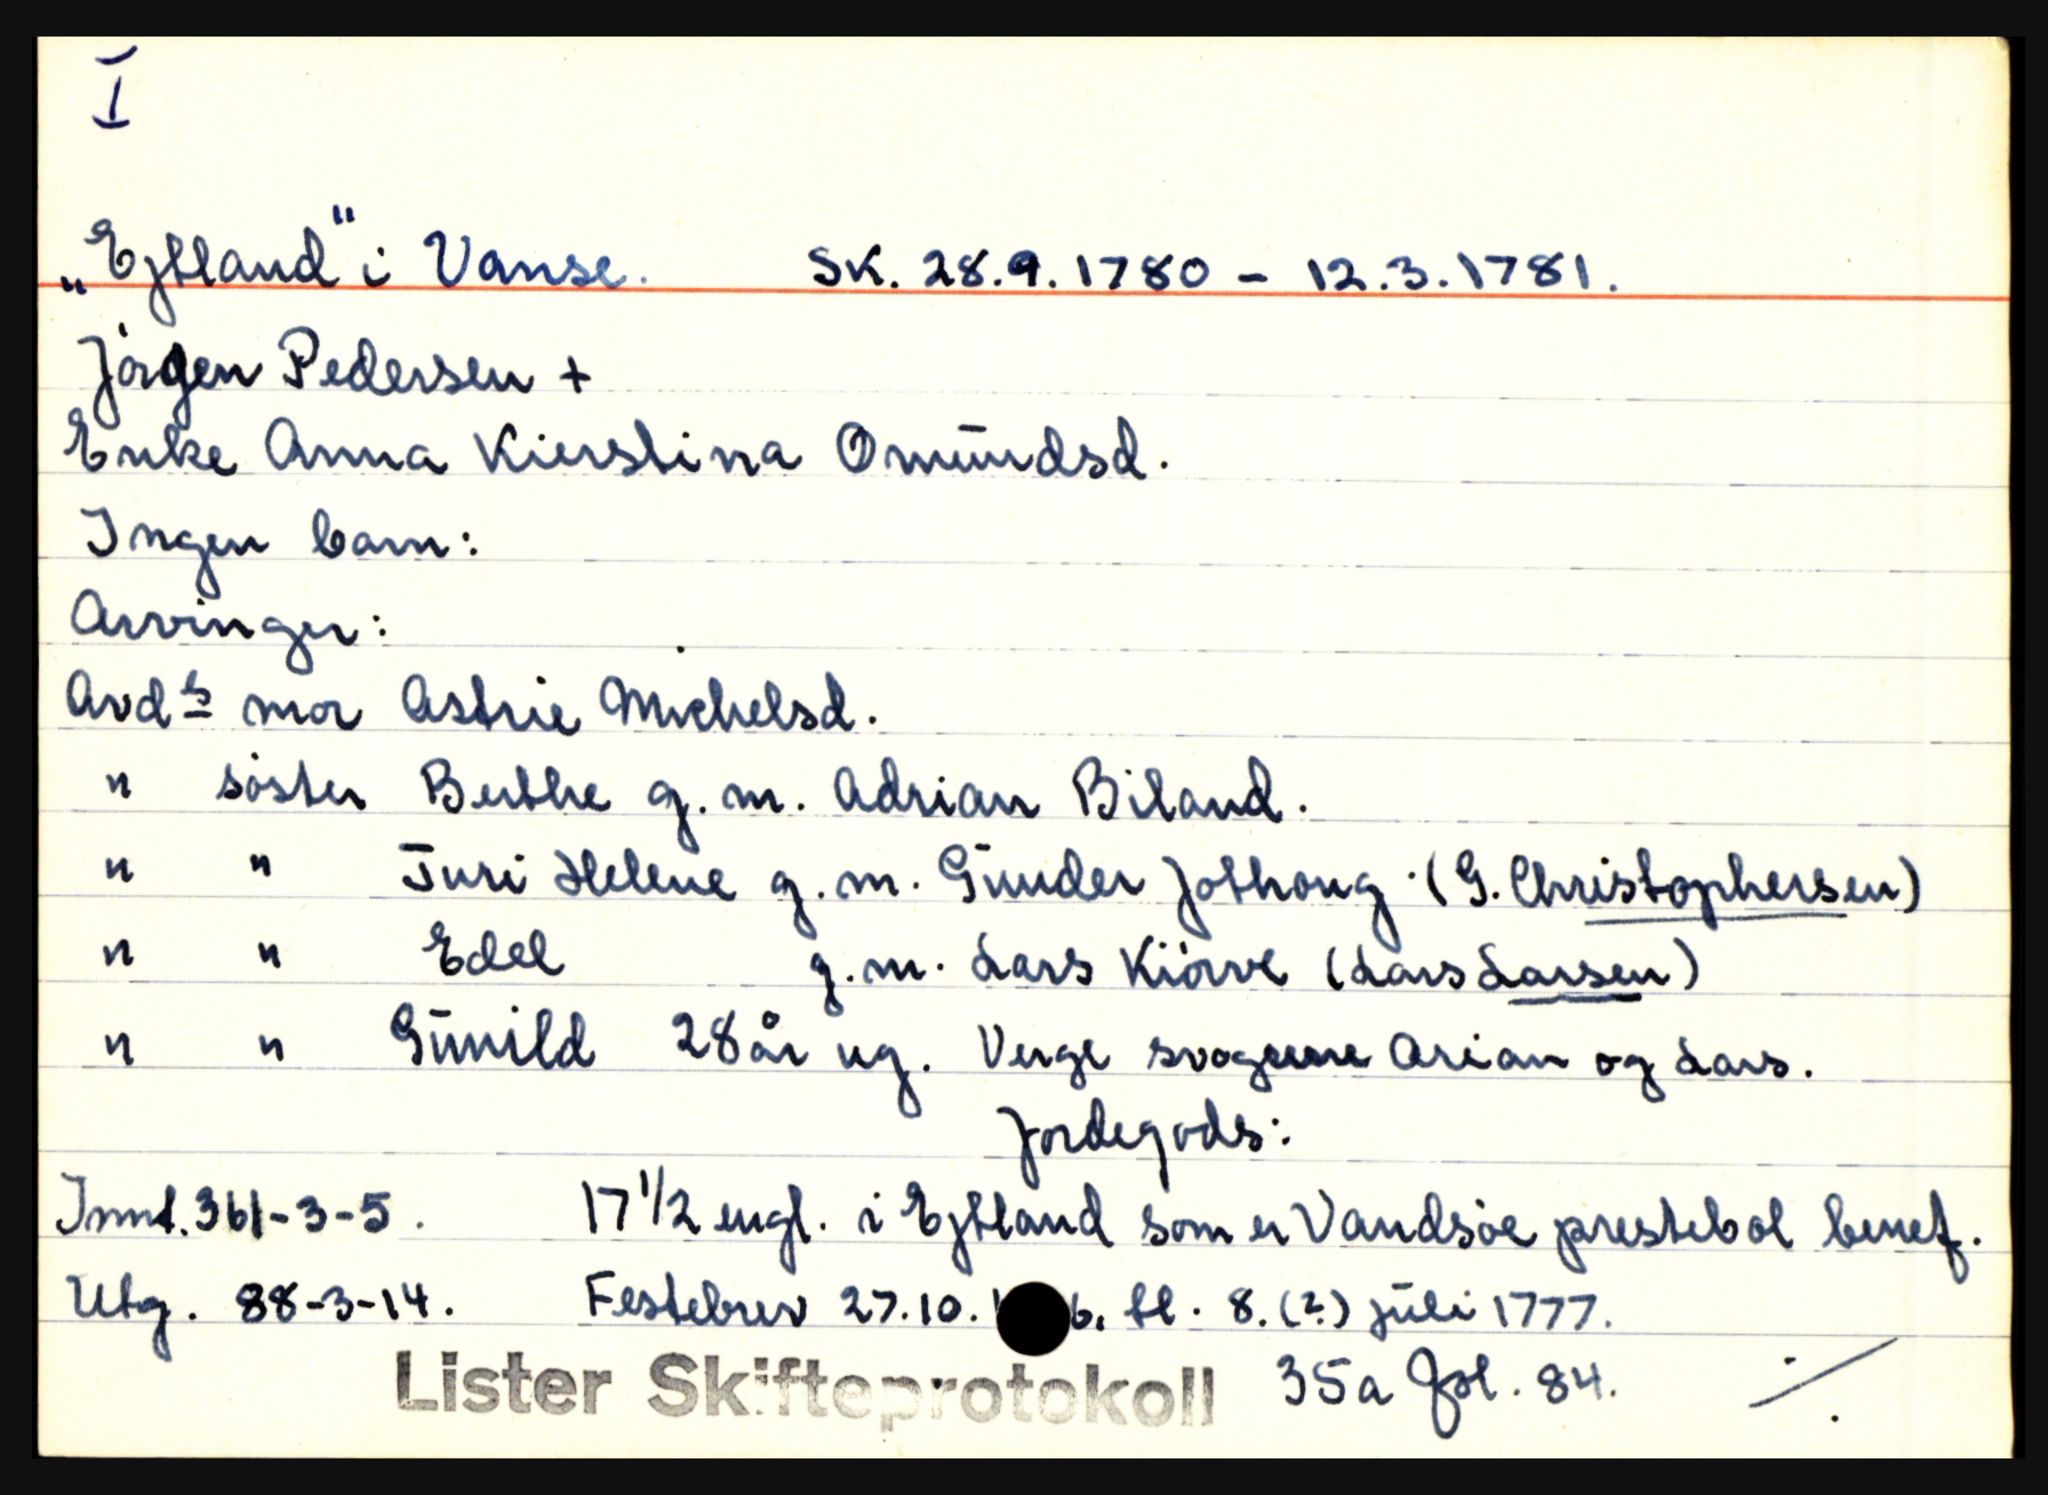 I
„Ejtland" i Vanse. SK. 28.9.1780 - 12.3.1781.
Jörgen Pedersen +
Enke Anna Kierstina Omūndsd.
Ingen barn:
Arvinger:
Avds mor Astrie Michelsd.
" söster Berthe g.m. Adrian Biland.
" " Turi Helene g.m. Gūnder Jothoug (G. Christophersen)
" " Edel g.m. Lars Kiörve (Lars Larsen)
" " Gūnild 28 år ug. Verge svogerene Arian og Lars.
Jordegods:
Innt. 361-3-5. 17 1/2 engl. i Ejtland som er Vandsöe prestebol benef.
Utg. 88-3-14. Festebrev 27.10. 6. tl. 8. (?) jūli 1777.
Lister Skifteprotokoll 35a fol. 84.